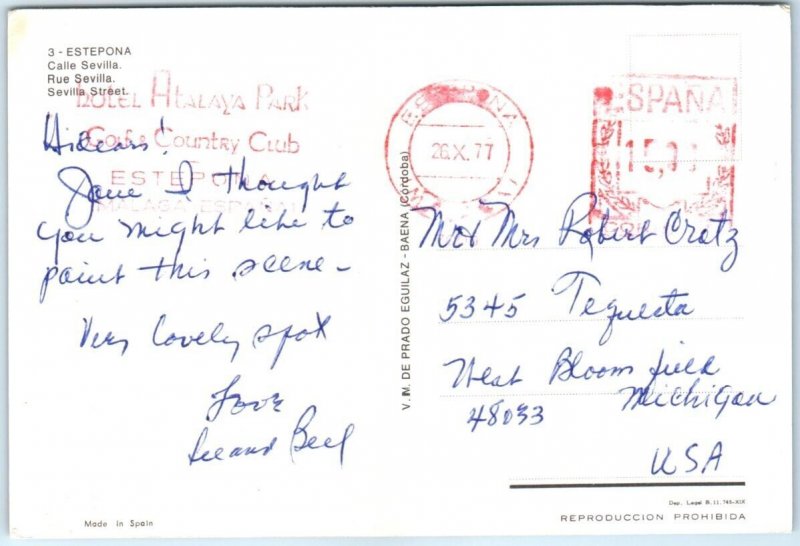 3 - ESTEPONA
Calle Sevilla.
Rue Sevilla.
Sevilla Street.
HOTEL ATALAYA PARK
Golf & Country Club
ESTEPONA
MALAGA ESPAÑA
Hi dears!
Jane I thought
you might like to
paint this scene -
Very lovely spot
Love
and
Made in Spain
V. M. DE PRADO EGUILAZ - BAENA (Córdoba)
ESTEPONA
26.X.77
ESPAÑA
Mr & Mrs Robert Cratz
5345 Tequesta
West Bloomfield
Michigan
48033
USA
Dep. Legal B. 11.745-XIX
REPRODUCCION PROHIBIDA